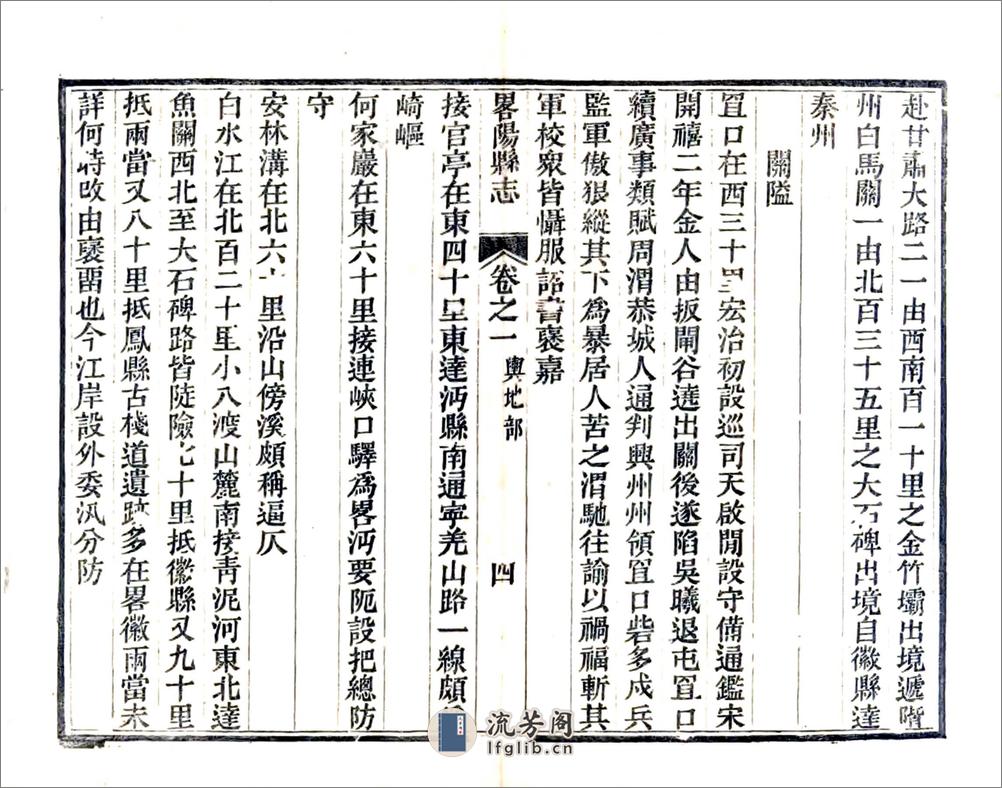 赴甘肅大路二一由西南百一十里之金竹壩出境遞階
州白馬關一由北百三十五里之大石碑出境自徽縣達
秦州
關隘
罝口在西三十里宏治初設巡司天啟間設守備通鑑宋
開禧二年金人由扳閘谷遶出關後遂陷吳曦退屯罝口
續廣事類賦周渭恭城人通判興州州領罝口砦多戍兵
監軍傲狠縱其下為暴居人苦之渭馳往諭以禍福斬其
軍校衆皆懾服詔書褒嘉
畧陽縣志 卷之一 輿地部 四
接官亭在東四十里東達沔縣南通寧羌山路一線頗
崎嶇
何家巖在東六十里接連峽口驛為畧沔要阨設把總防
守
安林溝在北六十里沿山傍溪頗稱逼仄
白水江在北百二十里小八渡山麓南接靑泥河東北達
魚關西北至大石碑路皆陡險七十里抵徽縣又九十里
抵兩當又八十里抵鳳縣古棧道遺跡多在畧徽兩當未
詳何時改由褒畱也今江岸設外委汛分防
流芳阁
lfglib.cn